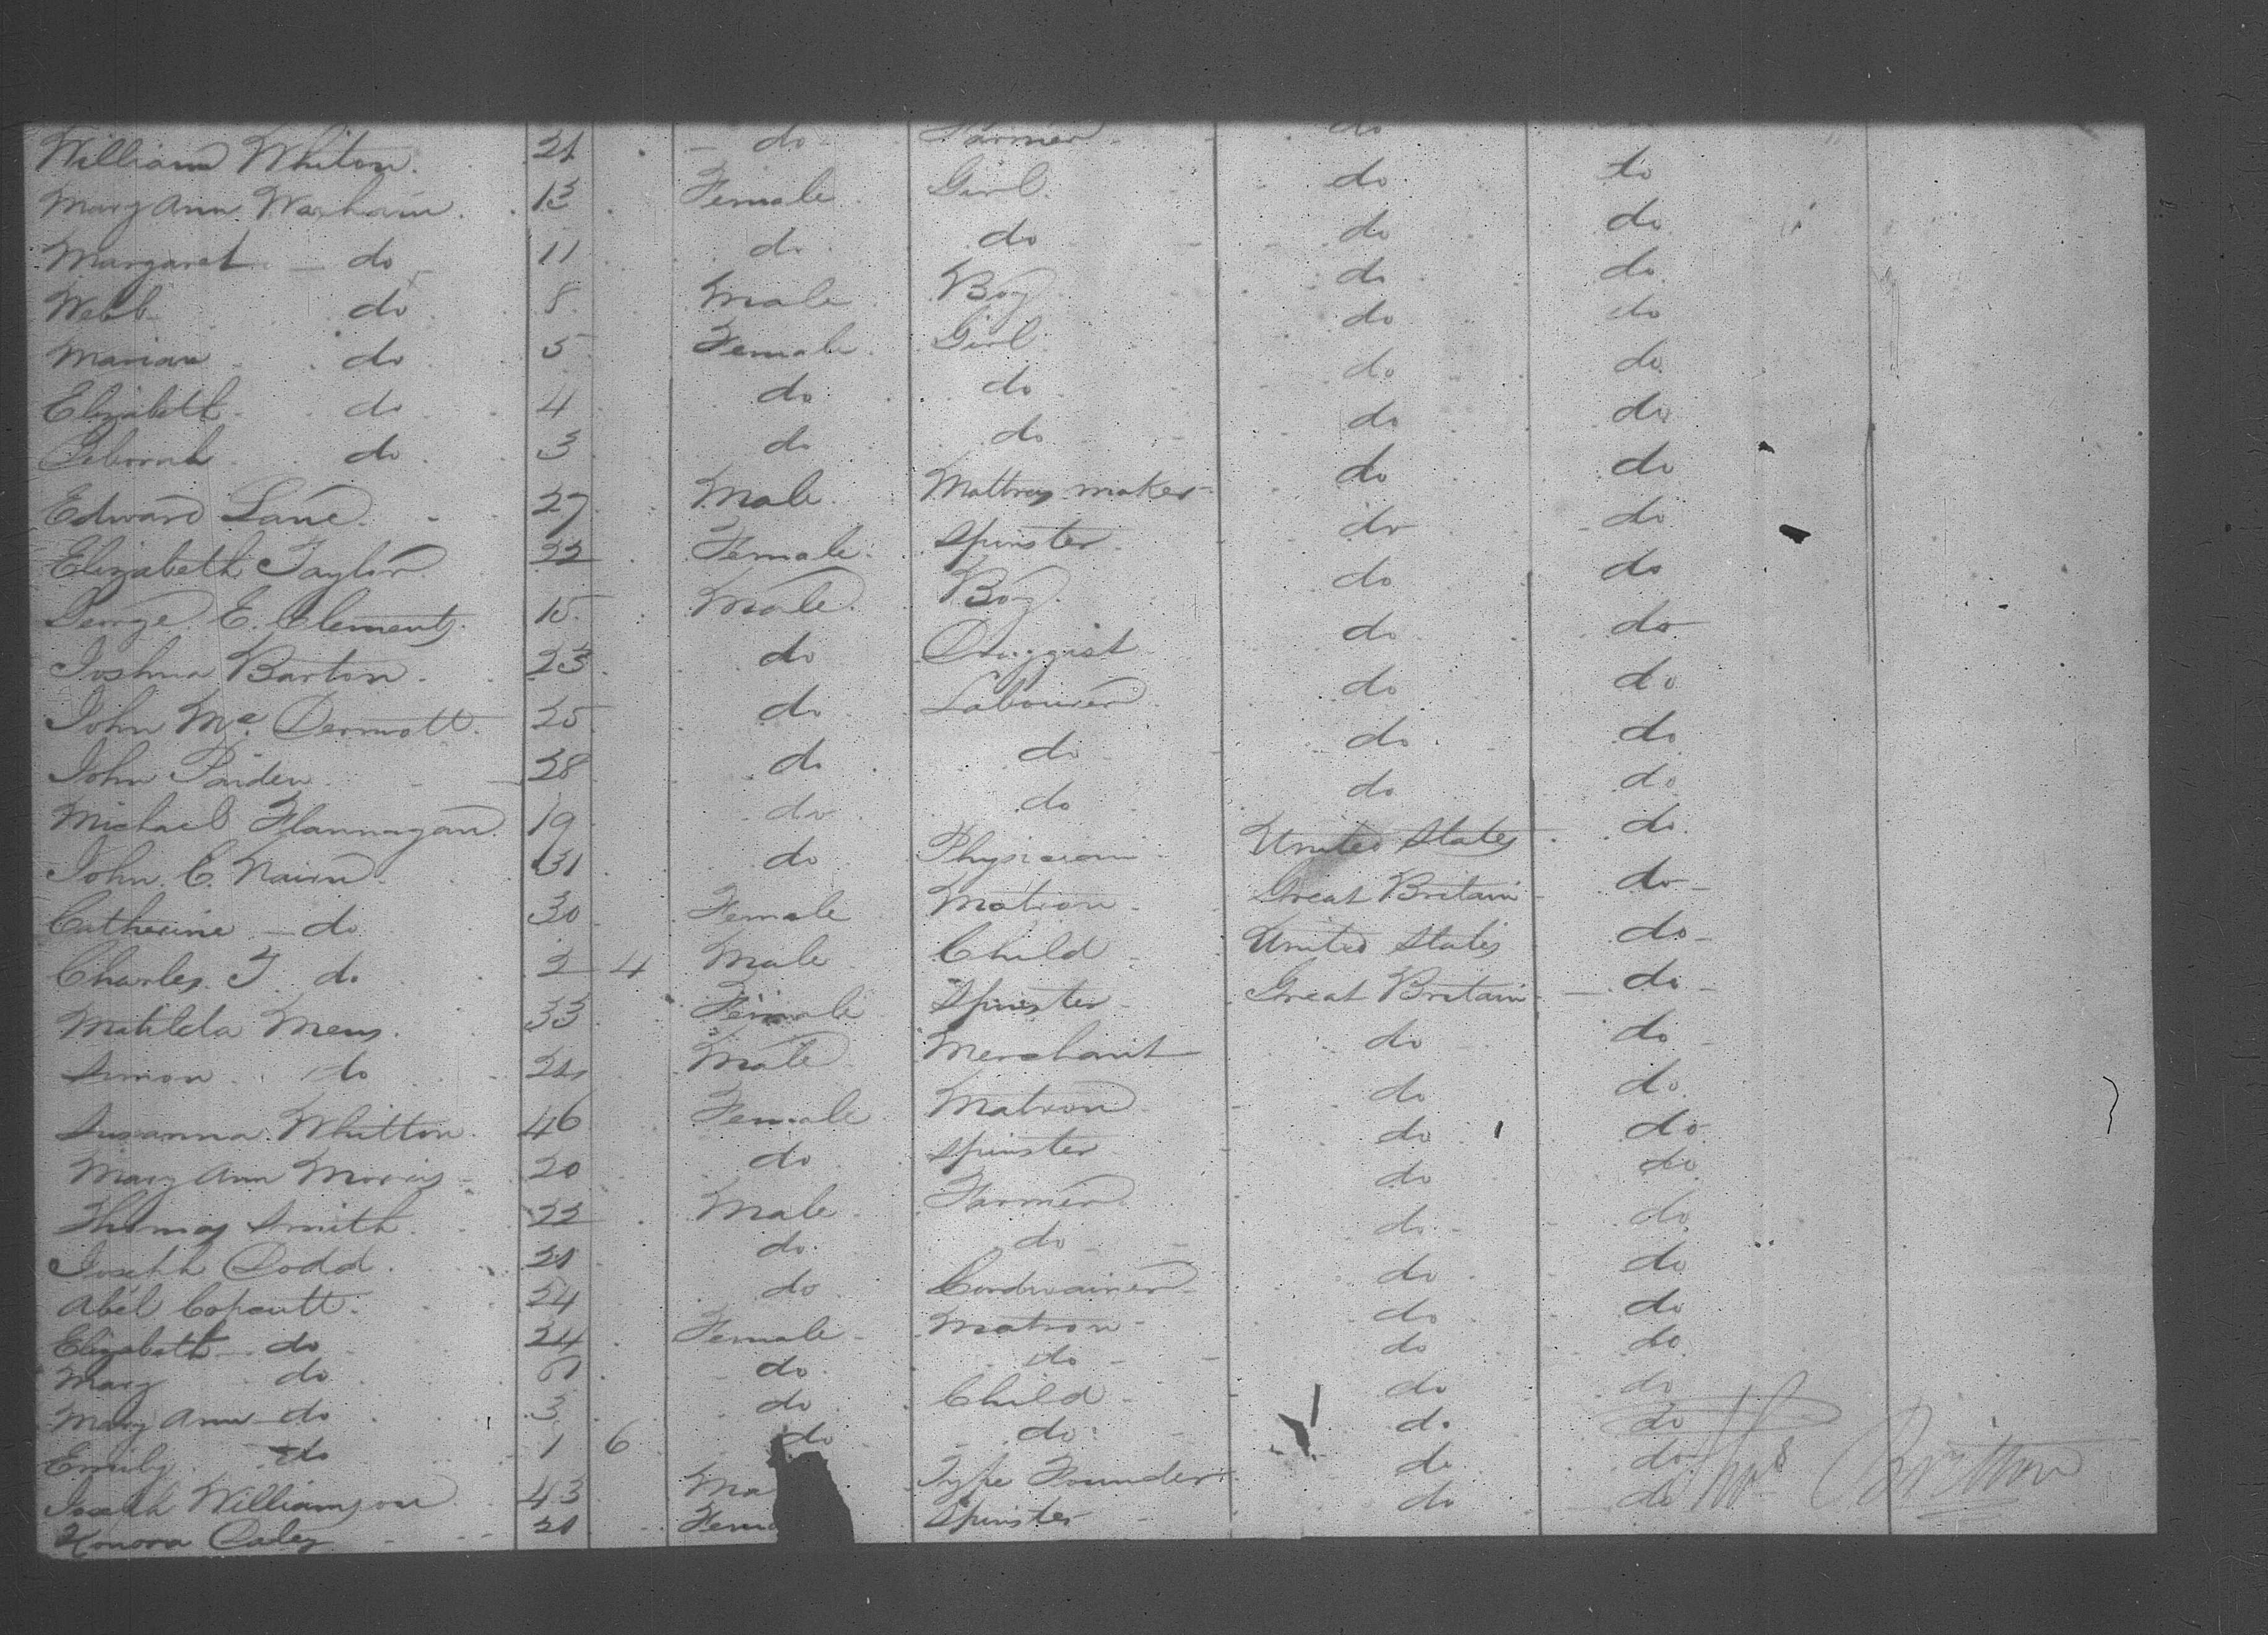 William Whiton. 21 do Farmer do
Mary Ann Warham. 13 Female Girl. do to
Margaret do 11 do do do do
Webb do 8 Male Boy do do
Marian do 5 Female Girl do do
Elizabeth do 4 do do do do
Deborah do 3 do do do do
Edward Lane. 27 Male. Mattrass maker do do
Elizabeth Taylor 22 Female. Spinster do do
George E. Clements. 15 Male. Boy. do do
Joshua Barton. 23 do Druggist do do
John Mc Dermott. 25 do Labourer do do
John 28 do do do do
Michael Flannagan. 19 do do do do
John C. Nairn 31 do Physician United States do
Catherine do 30 Female Matron Great Britain do
Charles T do 2 4 Male Child United States do
Matilda Mens. 33 Female Spinster Great Britain do
Simon do Male Merchant do do
Susanna Whitton. 46 Female Matron do do
Mary Ann Morris 20 do Spinster do do
Thomas Smith. 22 Male Farmer do do
Joseph Dodd. 21 do. do do do
Abel do Cordwainer do do
Elizabeth do 24 Female Matron do do
Mary do do do do do
Mary Ann do 3 do Child do do
Emily do 1 6 do do do do
Joseph Williamson 43 Ma Type Founder do do
Honora Daley 21 Fema Spinster do do
Thos Britton